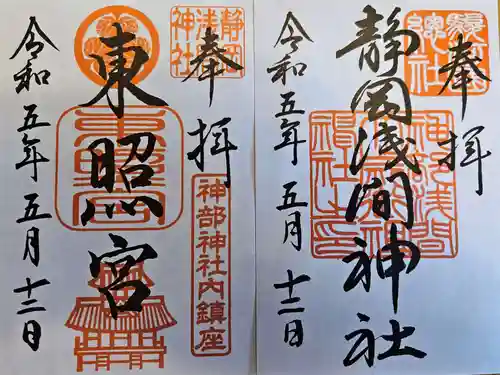 奉拝
静岡浅間神社
令和五年五月十二日
駿河総社
奉拝
東照宮
令和五年五月十二日
静岡浅間神社
神部神社内鎮座